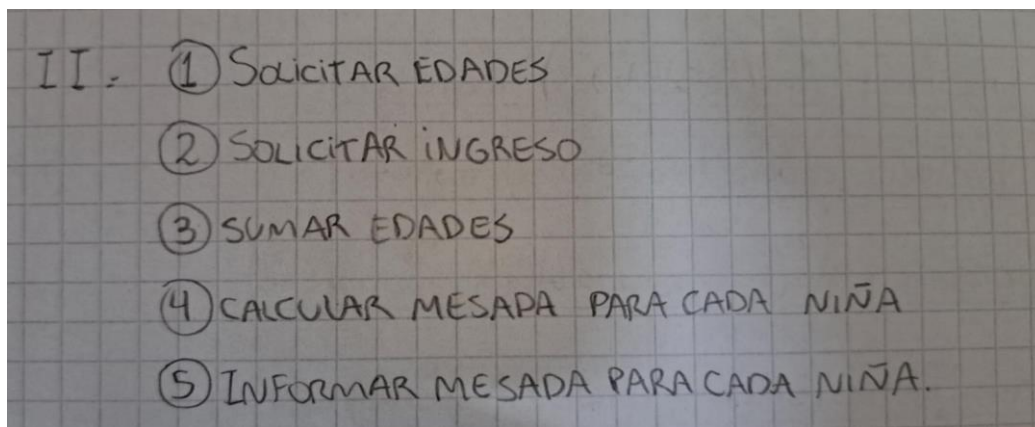 II. ① SOLICITAR EDADES
② SOLICITAR INGRESO
③ SUMAR EDADES
④ CALCULAR MESADA PARA CADA NIÑA
⑤ INFORMAR MESADA PARA CADA NIÑA.